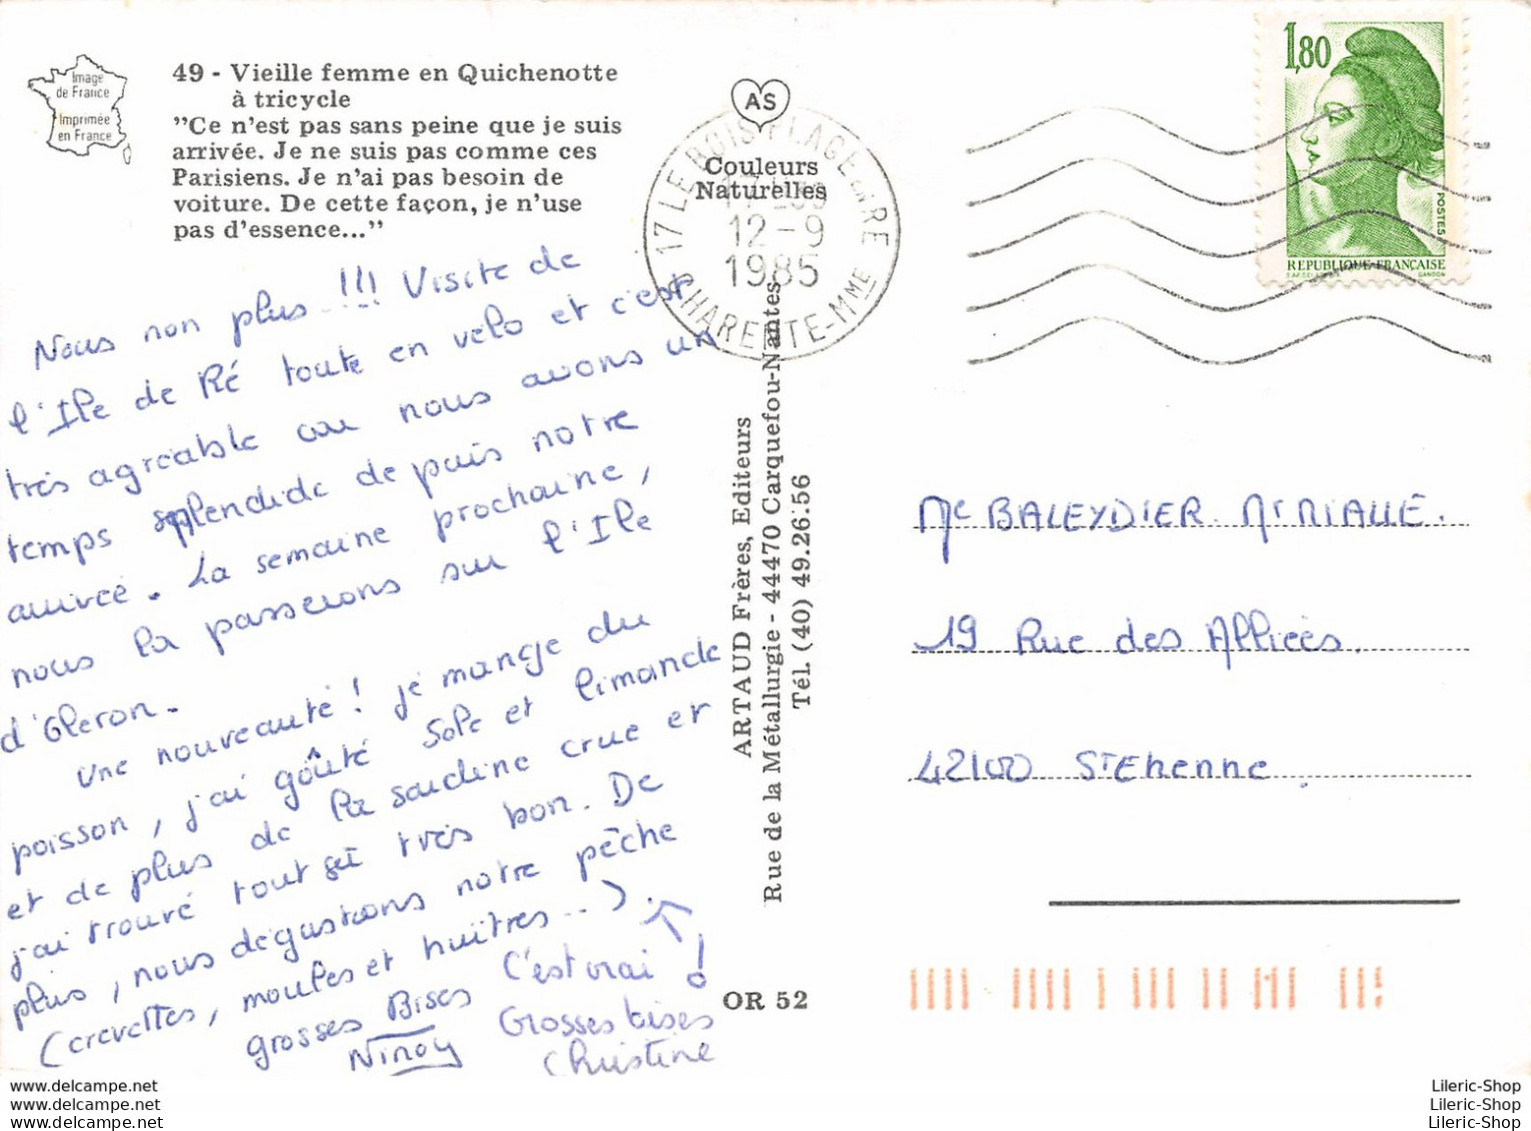 Image
de France
Imprimée
en France
49 - Vieille femme en Quichenotte
à tricycle
"Ce n'est pas sans peine que je suis
arrivée. Je ne suis pas comme ces
Parisiens. Je n'ai pas besoin de
voiture. De cette façon, je n'use
pas d'essence..."
Nous non plus...!!! Visite de
l'Ile de Ré toute en velo et c'est
très agreable car nous avons un
temps splendide depuis notre
arrivée. La semaine prochaine,
nous la passerons sur l'Ile
d'Oleron.
Une nouveauté! je mange du
poisson, j'ai goûté sole et limande
et de plus de la sardine crue et
j'ai trouvé tout très bon. De
plus, nous dégustons notre pêche
(crevettes, moules et huîtres...).
grosses Bises
Ninou
C'est vrai!
Grosses bises
Christine
AS
Couleurs
Naturelles
17 LE BOIS PLAGE EN RE
12-9
1985
CHARENTE-MME
ARTAUD Frères, Editeurs
Rue de la Métallurgie - 44470 Carquefou-Nantes
Tél. (40) 49.26.56
OR 52
1,80
POSTES
REPUBLIQUE FRANÇAISE
GANDON
BALEYDIER
19 Rue des Alliées.
42100 St Etienne
www.delcampe.net
www.delcampe.net
www.delcampe.net
Lileric-Shop
Lileric-Shop
Lileric-Shop